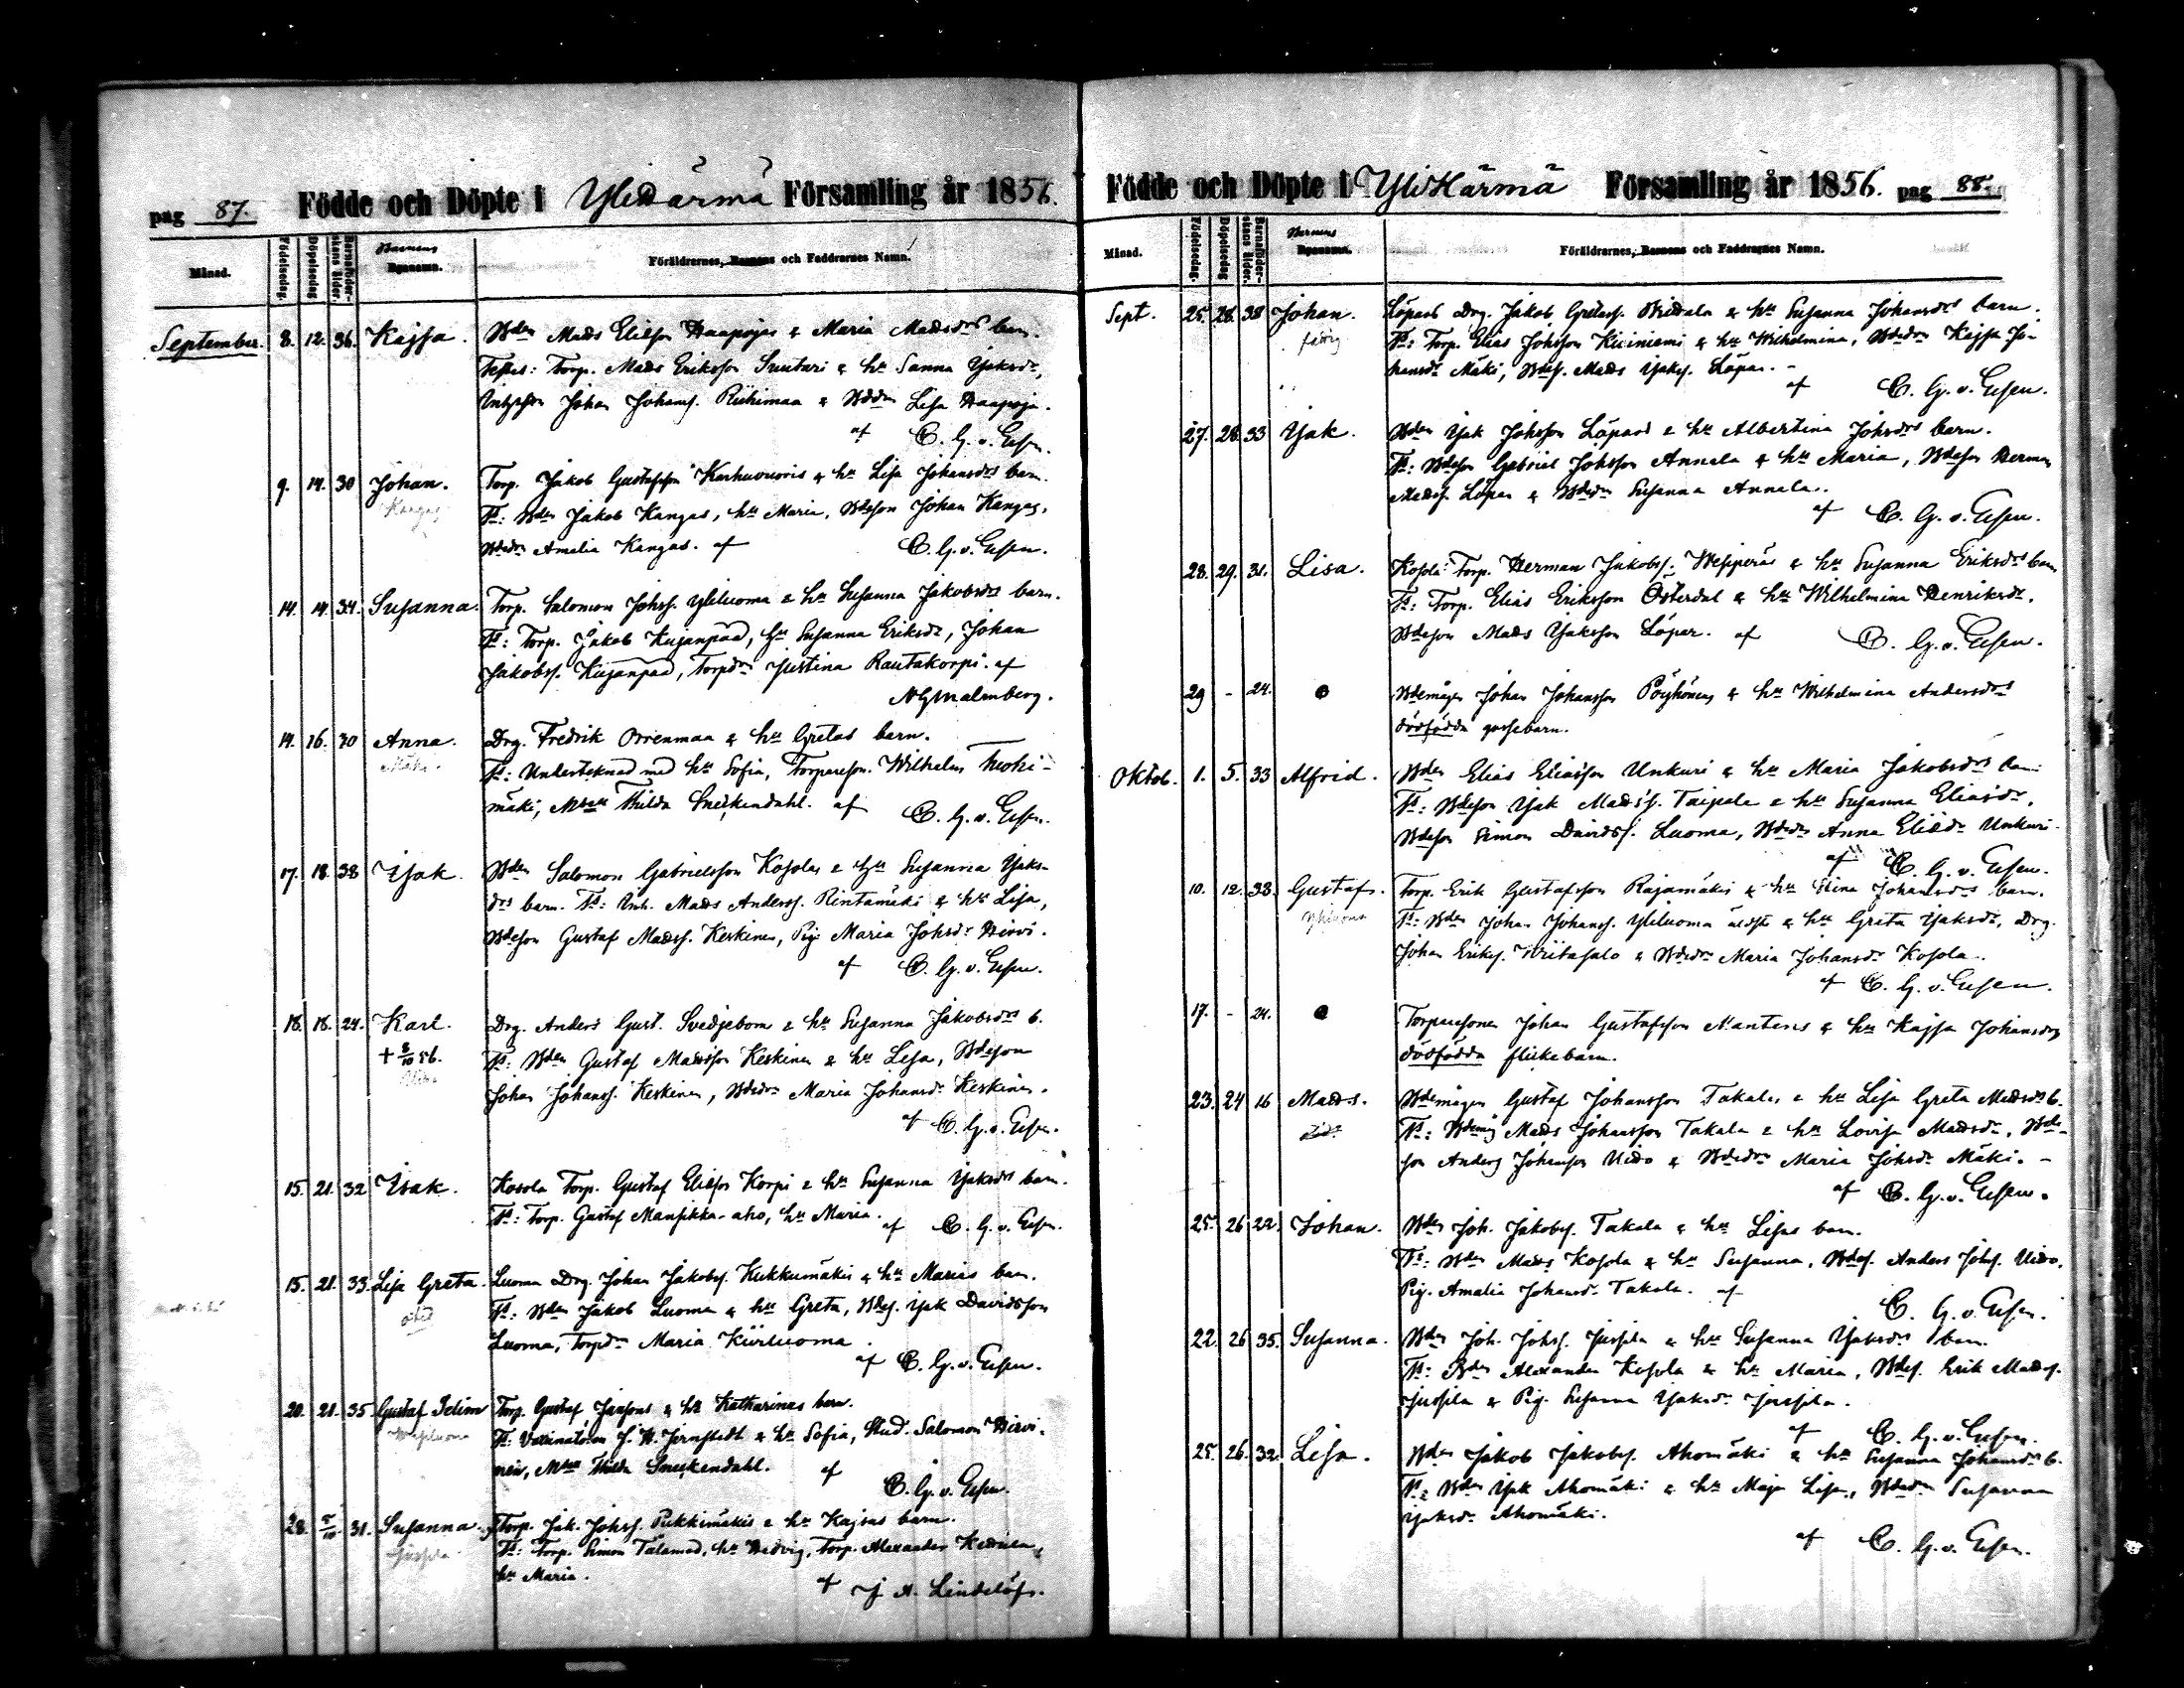 pag 87. Födde och Döpte i YliHärmä Församling år 1856.
Månad. Födelsedag. Döpelsedag Barnaföder-skans ålder. Barnens Egenamn. Föräldrarnes, Barnens och Faddrarnes Namn.
September. 8. 12. 36. Kajsa. Bden Mads Eliasson Haapojas & Maria Madsdrs barn.
Testes: Torp. Mads Eriksson Suutari & hu Sanna Isaksdr,
Johan Johanss. Riihimaa & Bddr Lisa Haapoja.
af C. G. v. Essen.
9. 14. 30 Johan. Torp. Jakob Gustafsson Karhuvuoris & hu Lisa Johansdrs barn.
Kangas Ts: Bden Jakob Kangas, hu Maria, Bdeson Johan Kangas,
Bdedr Amalia Kangas. af C. G. v. Essen.
14. 14. 34. Susanna. Torp. Salomon Johss. Yliluoma & hu Susanna Jakobsdrs barn.
Ts: Torp. Jakob Kujanpää, hu Susanna Eriksdr, Johan
Jakobss. Kujanpää, Torpdr Justina Rautakorpi. af
N G Malmberg.
14. 16. 30 Anna. Drg. Fredrik Orrenmaa & hu Gretas barn.
Mäki. Ts: Undertecknad med hu Sofia, Torpareson Wilhelm Kuoki-
mäki, Mlle Thilda Sneckendahl. af C. G. v. Essen.
17. 18. 38 Isak. Bden Salomon Gabrielsson Kosolas & hu Susanna Isaks-
drs barn. Ts: Inh. Mads Anderss. Rintamäki & hu Lisa,
Bdeson Gustaf Madss. Keskinen, Pig. Maria Johsdr Hirvi.
af C. G. v. Essen.
18. 18. 24. Karl. Drg. Anders Gust. Svedjebom & hu Susanna Jakobsdrs b.
+ 8/10 56. Ts: Bden Gustaf Madsson Keskinen & hu Lisa, Bdeson
Johan Johanss. Keskinen, Bdedr Maria Johansdr Keskinen.
af C. G. v. Essen.
15. 21. 32 Isak. Kosola Torp. Gustaf Eliasson Korpi & hu Susanna Isaksdrs barn.
Ts: Torp. Gustaf Mansikka-aho, hu Maria. af C. G. v. Essen.
15. 21. 33. Lisa Greta. Luoma Drg. Johan Jakobss. Kukkumäkis & hu Marias barn.
Ts: Bden Jakob Luoma & hu Greta, Bdes. Isak Davidsson
Luoma, Torpdr Maria Kiviluoma.
af C. G. v. Essen.
20. 21. 35 Gustaf Selim Torp. Gustaf Jansons & hu Katharinas barn.
Ts: Vaccinatoren J. W. Jernstedt & hu Sofia, Stud. Salomon Hirvi-
nen, Mlle Thilda Sneckendahl. af
C. G. v. Essen.
28. 5/10. 31. Susanna. Torp. Jak. Johss. Pukkimäkis & hu Kajsas barn.
Jussila Ts: Torp. Simon Talamad, hu Hedvig, Torp. Alexander
hu Maria. af J A. Lindelöf.
Födde och Döpte i YliHärmä Församling år 1856. pag 88.
Månad. Födelsedag. Döpelsedag Barnaföder-skans ålder. Barnens Egenamn. Föräldrarnes, Barnens och Faddrarnes Namn.
Sept. 25. 28. 38 Johan. Löpars Drg. Jakob Gretass. & hu Susanna Johansdrs barn.
Ts: Torp. Elias Johsson Kiviniemi & hu Wilhelmina, Bdedr Kajsa Jo-
hansdr Mäki, Bdes. Mads Isakss. Löpar.
af C. G. v. Essen.
27. 28. 33 Isak. Bden Isak Johsson Löpars & hu Albertina Johsdrs barn.
Ts: Bdeson Gabriel Johsson Annala & hu Maria, Bdeson Herman
Madss. Löpar & Bdedr Susanna Annala.
af C. G. v. Essen.
28. 29. 31. Lisa. Kosola Torp. Herman Jakobss. & hu Susanna Eriksdrs barn.
Ts: Torp. Elias Eriksson Österdal & hu Wilhelmina Henriksdr.
Bdeson Mads Isaksson Löpar. af C. G. v. Essen.
29 - 24. Bdemågen Johan Johansson Pöyhönens & hu Wilhelmina Andersdrs
dödfödda gossebarn.
Oktob. 1. 5. 33 Alfrid. Bden Elias Eliasson Unkuri & hu Maria Jakobsdrs barn.
Ts: Bdeson Isak Madss. Taipale & hu Susanna Eliasdr.
Bdeson Simon Davidss. Luoma, Bdedr Anna Eliasdr Unkuri.
af C. G. v. Essen.
10. 12. 38. Gustaf. Torp. Erik Gustafsson Rajamäkis & hu Stina Johansdrs barn.
Yliluoma Ts: Bden Johan Johanss. Yliluoma äldste & hu Greta Isaksdr, Drg.
Johan Erikss. Wiitasalo & Bdedr Maria Johansdr Kosola.
af C. G. v. Essen.
17. - 24. Torparesonen Johan Gustafsson Mantens & hu Kajsa Johansdrs
dödfödda flickebarn.
23. 24 16 Mads. Bdemågen Gustaf Johansson Takalas & hu Lisa Greta Madsdrs b.
Ts: Bdemåg Mads Johansson Takala & hu Lovisa Madsdr, Bde-
son Anders Johansson Uido & Bdedr Maria Johsdr Mäki. -
af C. G. v. Essen.
25. 26 22. Johan. Bden Joh. Jakobss. Takala & hu Lisas barn.
Ts: Bden Mads Kosola & hu Susanna, Bdes. Anders Johss. Uido,
Pig. Amalia Johansdr Takala. af
C. G. v. Essen.
22. 26 35. Susanna. Bden Joh. Johss. Jussila & hu Susanna Isaksdrs barn.
Ts: Bden Alexander Kosola & hu Maria, Bdes. Erik Madss.
Jussila & Pig. Susanna Isaksdr Jussila.
af C. G. v. Essen.
25. 26. 32. Lisa. Bden Jakob Jakobss. Ahomäki & hu Susanna Johansdrs b.
Ts: Bden Isak Ahomäki & hu Maja Lisa, Bdedr Susanna
Isaksdr Ahomäki.
af C. G. v. Essen.